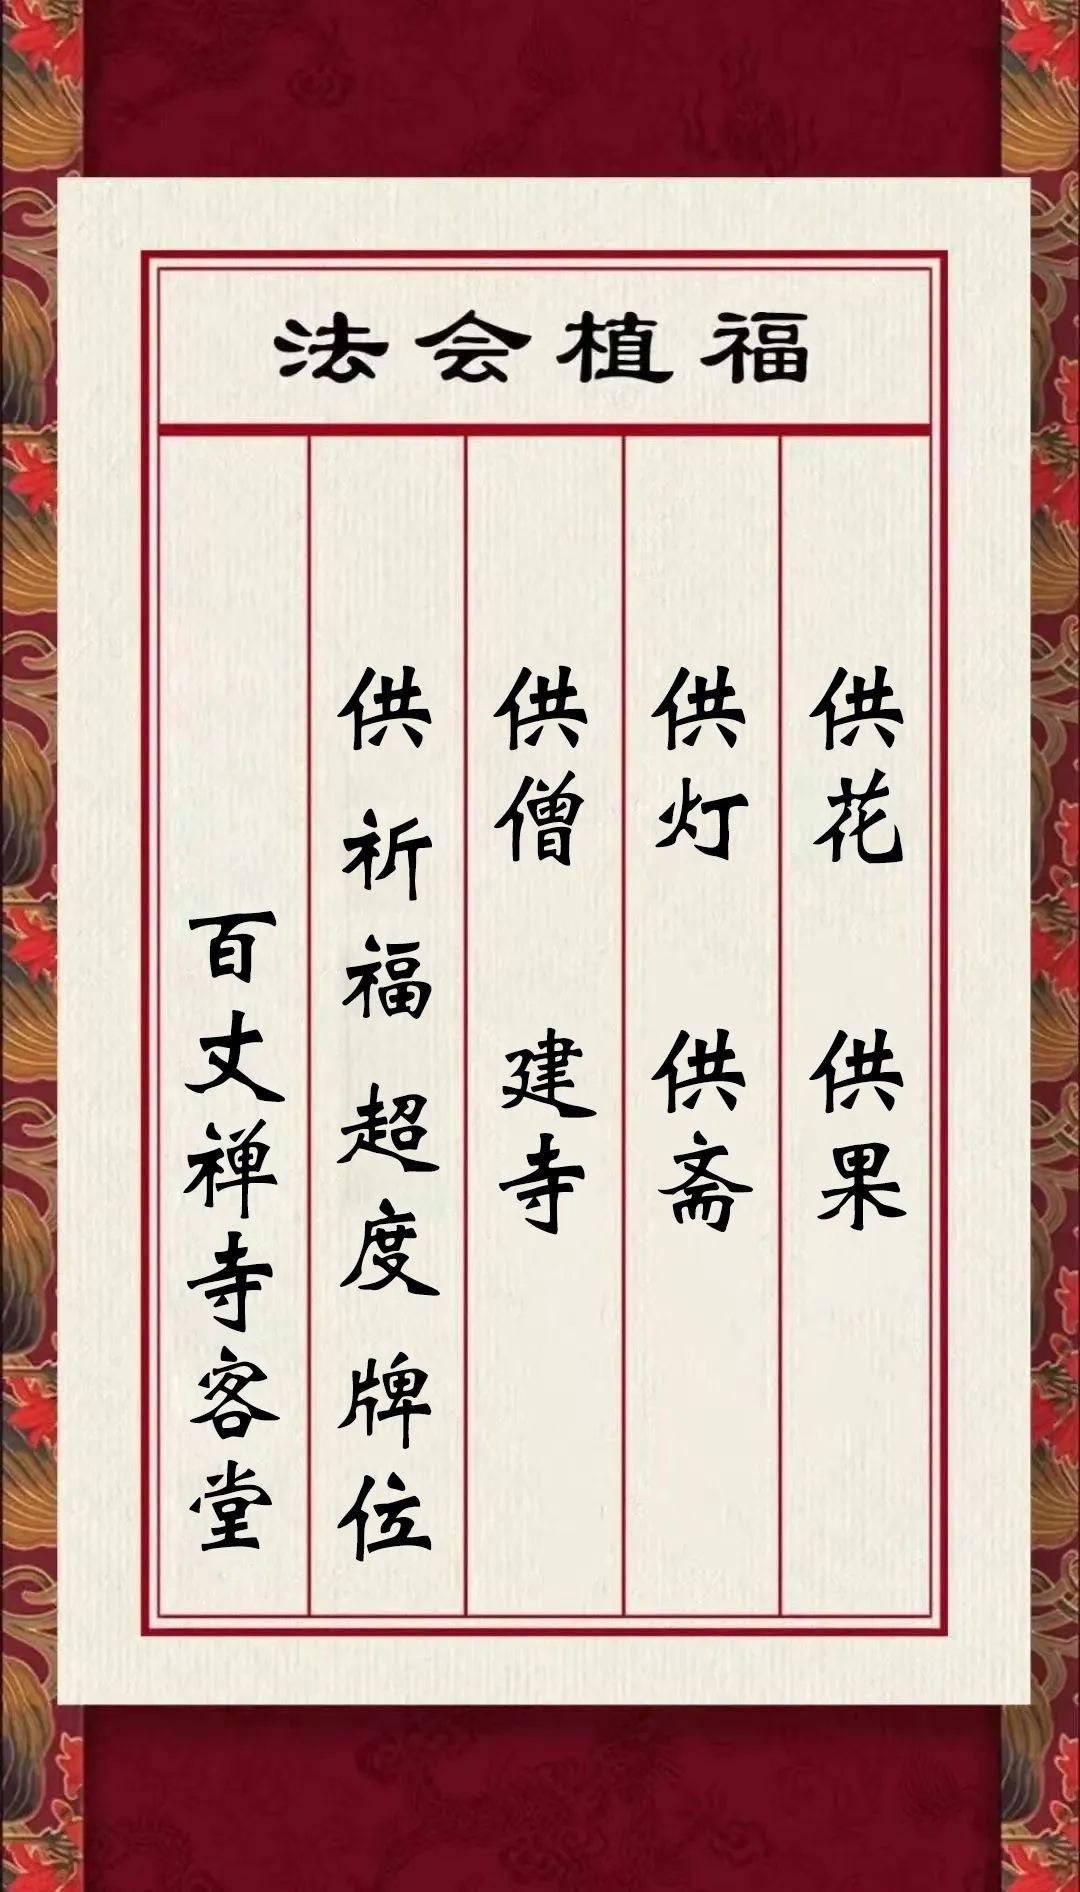 法会植福
供花 供果
供灯 供斋
供僧 建寺
供祈福超度牌位
百丈禅寺客堂